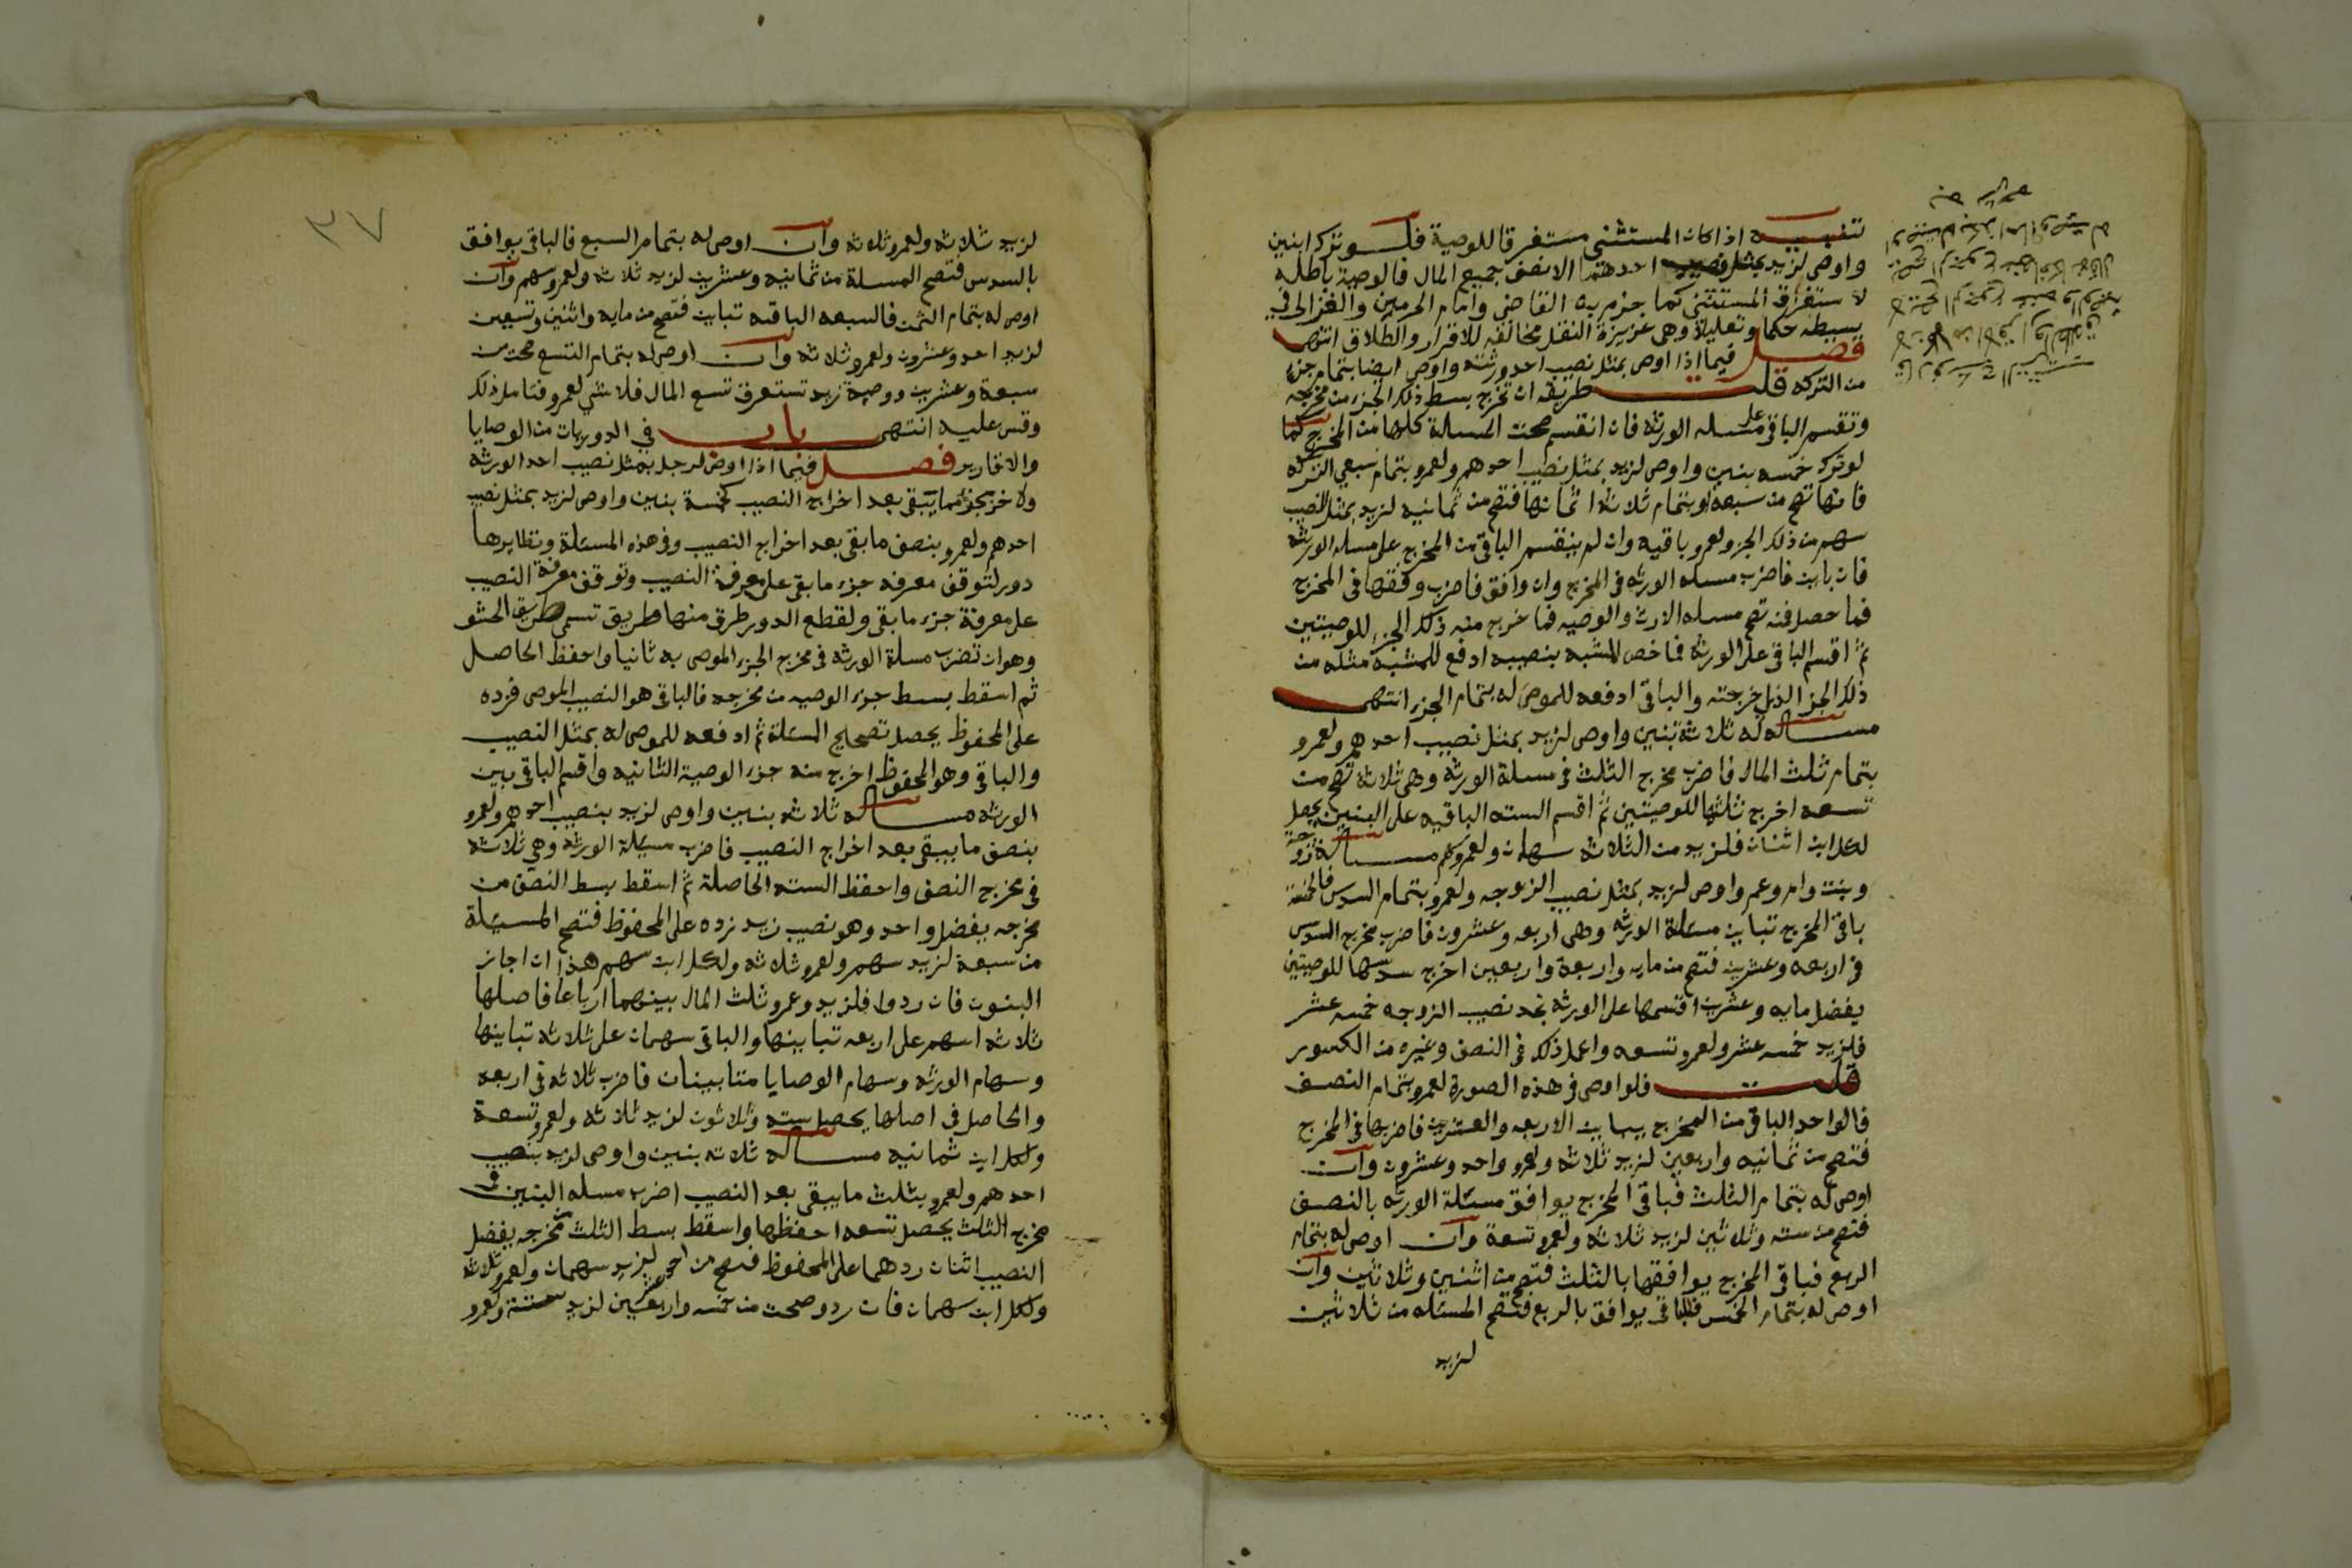 تنبيه اذا كان المستثنى مستغرقا للوصية فلو ترك ابنين
واوصى لزيد بمثل نصيب احدهما الا نصف جميع المال فالوصية باطله
لاستغراق المستثنى كما جزم به القاضي وامام الحرمين والغزالي في
بسيطه حكما وتعليلا وهي عزيزة النقل مخالفه للاقرار والطلاق انتهى
فصل فيما اذا اوصى بمثل نصيب احد ورثته واوصى ايضا بتمام جزء
من التركه قلت طريقه ان تخرج بسط ذلك الجزء من مخرجه
وتقسم الباقي على مسله الورثه فان انقسم صحت المسالة كلها من المخرج كما
لو ترك خمسه بنين واوصى لزيد بمثل نصيب احدهم ولعمرو بتمام سبعي التركه
فانها تصح من سبعه او بتمام ثلاثة اثمانها فتصح من ثمانيه لزيد بمثل النصيب
سهم من ذلك الجزء ولعمرو باقيه وان لم ينقسم الباقي من المخرج على مسله الورثه
فان باين فاضرب مسله الورثه في المخرج وان وافق فاضرب وفقها في المخرج
فما حصل فمنه تصح مسله الارث والوصيه فما خرج منه ذلك الجزء للوصيتين
ثم اقسم الباقي على الورثه فما خص المشبه بنصيبه ادفع للمشبه مثله من
ذلك الجز الذي اخرجته والباقي ادفعه للموصى له بتمام الجزء انتهى
مساله له ثلاثة بنين واوصى لزيد بمثل نصيب احدهم ولعمرو
بتمام ثلث المال فاضرب مخرج الثلث في مسلة الورثه وهي ثلاثه تصح من
تسعه اخرج ثلثها للوصيتين ثم اقسم السته الباقيه على البنين يحصل
لكل ابن اثنان فلزيد من الثلاثه سهمان ولعمرو سهم مساله زوجة
وبنت وام وعم واوصى لزيد بمثل نصيب الزوجه ولعمرو بتمام السدس فالخمسة
باقي المخرج تباين مسئلة الورثه وهي اربعه وعشرون فاضرب مخرج السدس
في اربعه وعشرين فتصح من مايه واربعة واربعين اخرج سدسها للوصيتين
يفضل مايه وعشرين اقسمها على الورثه تجد نصيب الزوجه خمسه عشر
فلزيد خمسه عشر ولعمرو تسعه واعمل ذلك في النصف وغيره من الكسور
قلت فلو اوصى في هذه الصورة لعمرو بتمام النصف
فالواحد الباقي من المخرج يباين الاربعه والعشرين فاضربها في المخرج
فتصح من ثمانيه واربعين لزيد ثلاثه ولعمرو واحد وعشرون وان
اوصى له بتمام الثلث فباقي المخرج يوافق مسئلة الورثه بالنصف
فتصح من سته وثلاثين لزيد ثلاثه ولعمرو تسعة وان اوصى له بتمام
الربع فباقي المخرج يوافقها بالثلث فتصح من اثنين وثلاثين وان
اوصى له بتمام الخمس فالباقي يوافق بالربع فتصح المسئله من ثلاثين
لزيد
٣٧
لزيد ثلاثه ولعمرو ثلاثه وان اوصى له بتمام السبع فالباقي يوافق
بالسدس فتصح المسلة من ثمانيه وعشرين لزيد ثلاثه ولعمرو سهم وان
اوصى له بتمام الثمن فالسبعه الباقيه تباين فتصح من مايه واثنين وتسعين
لزيد احد وعشرون ولعمرو ثلاثه وان اوصى له بتمام التسع صحت من
سبعة وعشرين ووصية زيد تستغرق تسع المال فلا شي لعمرو فتامل ذلك
وقس عليه انتهى باب في الدوريات من الوصايا
والاقارير فصل فيما اذا اوصى لرجل بمثل نصيب احد الورثه
ولاخر بجزء مما يبقى بعد اخراج النصيب كخمسة بنين واوصى لزيد بمثل نصيب
احدهم ولعمرو بنصف ما بقي بعد اخراج النصيب وفي هذه المسئلة ونظايرها
دور لتوقف معرفه جزء ما بقي على معرفة النصيب وتوقف معرفة النصيب
على معرفة جزء ما بقي ولقطع الدور طرق منها طريق تسمى طريق الحشو
وهو ان تضرب مسلة الورثه في مخرج الجزء الموصى به ثانيا واحفظ الحاصل
ثم اسقط بسط جزء الوصيه من مخرجه فالباقي هو النصيب الموصى فزده
على المحفوظ يحصل تصحيح المسئلة ثم ادفعه للموصى له بمثل النصيب
والباقي وهو المحفوظ اخرج منه جزء الوصية الثانيه واقسم الباقي بين
الورثه مساله ثلاثه بنين واوصى لزيد بنصيب احدهم ولعمرو
بنصف ما يبقى بعد اخراج النصيب فاضرب مسئلة الورثه وهي ثلاثة
في مخرج النصف واحفظ السته الحاصلة ثم اسقط بسط النصف من
مخرجه يفضل واحد وهو نصيب زيد زده على المحفوظ فتصح المسئلة
من سبعة لزيد سهم ولعمرو ثلاثه ولكل ابن سهم هذا ان اجاز
البنون فان ردوا فلزيد وعمرو ثلث المال بينهما ارباعا فاصلها
ثلاثه اسهم على اربعه تباينها والباقي سهمان على ثلاثه تباينها
وسهام الورثه وسهام الوصايا متباينان فاضرب ثلاثه في اربعه
والحاصل في اصلها يحصل سته وثلاثون لزيد ثلاثه ولعمرو تسعة
ولكل ابن ثمانيه مساله ثلاثه بنين واوصى لزيد بنصيب
احدهم ولعمرو بثلث ما يبقى بعد النصيب اضرب مسله البنين في
مخرج الثلث يحصل تسعه احفظها واسقط بسط الثلث من مخرجه يفضل
النصيب اثنان ردهما على المحفوظ فتصح من احد عشر لزيد سهمان ولعمرو ثلاثه
ولكل ابن سهمان فان ردو صحت من خمسه واربعين لزيد ستة ولعمرو